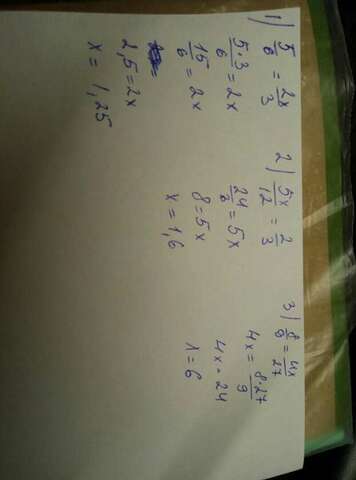 1) 5/6 = 2x/3
5·3/6 = 2x
15/6 = 2x
2,5=2x
x = 1,25
2) 5x/12 = 2/3
24/3 = 5x
8=5x
x=1,6
3) 8/9 = 4x/27
4x = 8·27/9
4x = 24
x=6